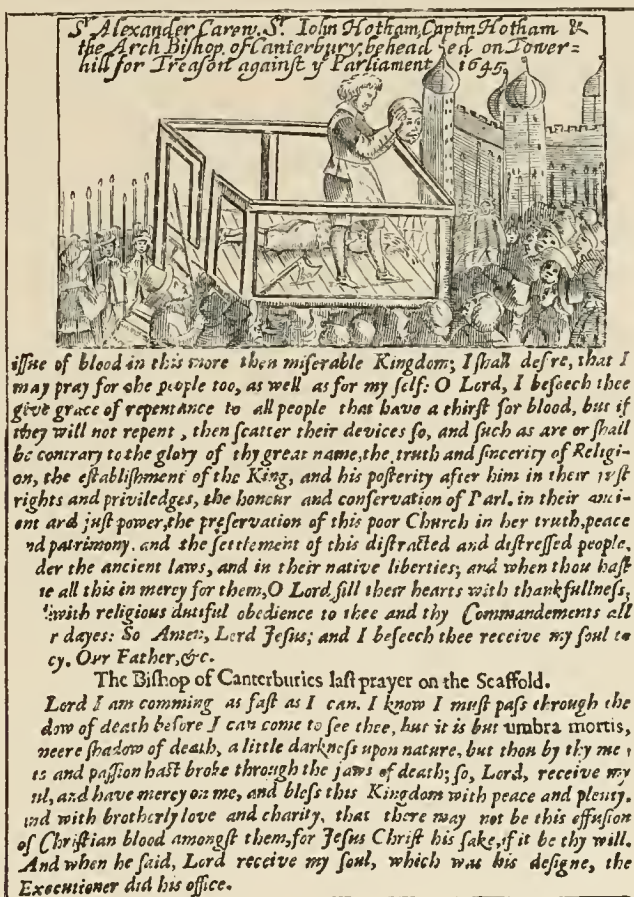 Sr Alexander Carew. Sr. Iohn Hotham, Captin Hotham &
the Arch Bishop, of Canterbury, behead ed on Tower=
hill for Treason against ye Parliament 1645.
issue of blood in this more then miserable Kingdom; I shall desre, that I
may pray for she people too, as well as for my self: O Lord, I beseech thee
give grace of repentance to all people that have a thirst for blood, but if
they will not repent, then scatter their devices so, and such as are or shall
be contrary to the glory of thy great name, the truth and sincerity of Religi-
on, the establishment of the King, and his posterity after him in their just
rights and priviledges, the honour and conservation of Parl. in their anci-
ent and just power, the preservation of this poor Church in her truth, peace
nd patrimony. and the settlement of this distracted and distressed people,
der the ancient laws, and in their native liberties; and when thou hast
ne all this in mercy for them, O Lord, fill their hearts with thankfullness,
with religious dutiful obedience to thee and thy Commandements all
r dayes: So Amen, Lord Jesus; and I beseech thee receive my soul to
cy. Our Father, &c.
The Bishop of Canterburies last prayer on the Scaffold.
Lord I am comming as fast as I can. I know I must pass through the
dow of death before I can come to see thee, but it is but umbra mortis,
neere shadow of death, a little darkness upon nature, but thou by thy me
ts and passion hast broke through the jaws of death; so, Lord, receive my
ul, and have mercy on me, and bless this Kingdom with peace and plenty.
ind with brotherly love and charity, that there may not be this effusion
of Christian blood amongst them, for Jesus Christ his sake, if it be thy will.
And when he said, Lord receive my soul, which was his designe, the
Executioner did his office.